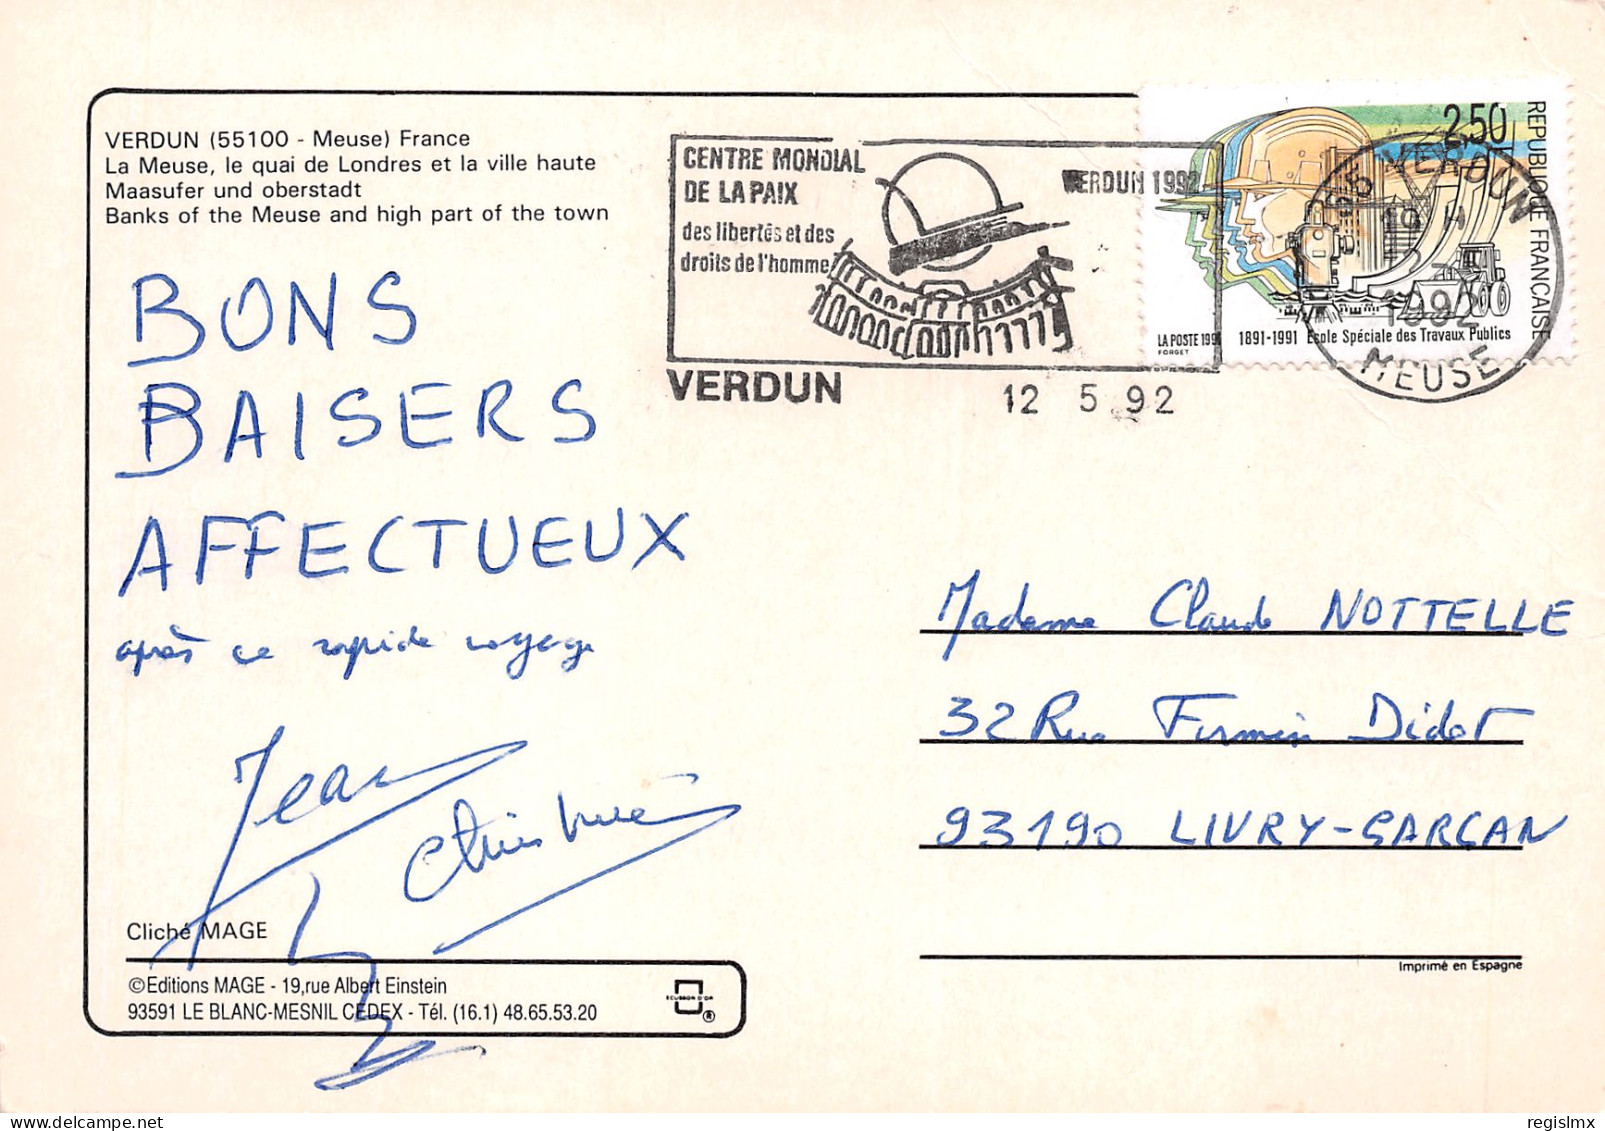 VERDUN (55100 - Meuse) France
La Meuse, le quai de Londres et la ville haute
Maasufer und oberstadt
Banks of the Meuse and high part of the town
CENTRE MONDIAL
DE LA PAIX
des libertés et des
droits de l'homme
VERDUN 1992
VERDUN
12 5 92
2,50
REPUBLIQUE FRANCAISE
LA POSTE 1991
FORGET
1891-1991 Ecole Spéciale des Travaux Publics
55 VERDUN
19 H
12 5
1992
MEUSE
BONS
BAISERS
AFFECTUEUX
après ce rapide voyage
Jean
Christine
Madame Claude NOTTELLE
32 Rue Firmin Didot
93190 LIVRY-GARGAN
Cliché MAGE
©Editions MAGE - 19,rue Albert Einstein
93591 LE BLANC-MESNIL CEDEX - Tél. (16.1) 48.65.53.20
ECUSSON D'OR
®
Imprimé en Espagne
regislmx